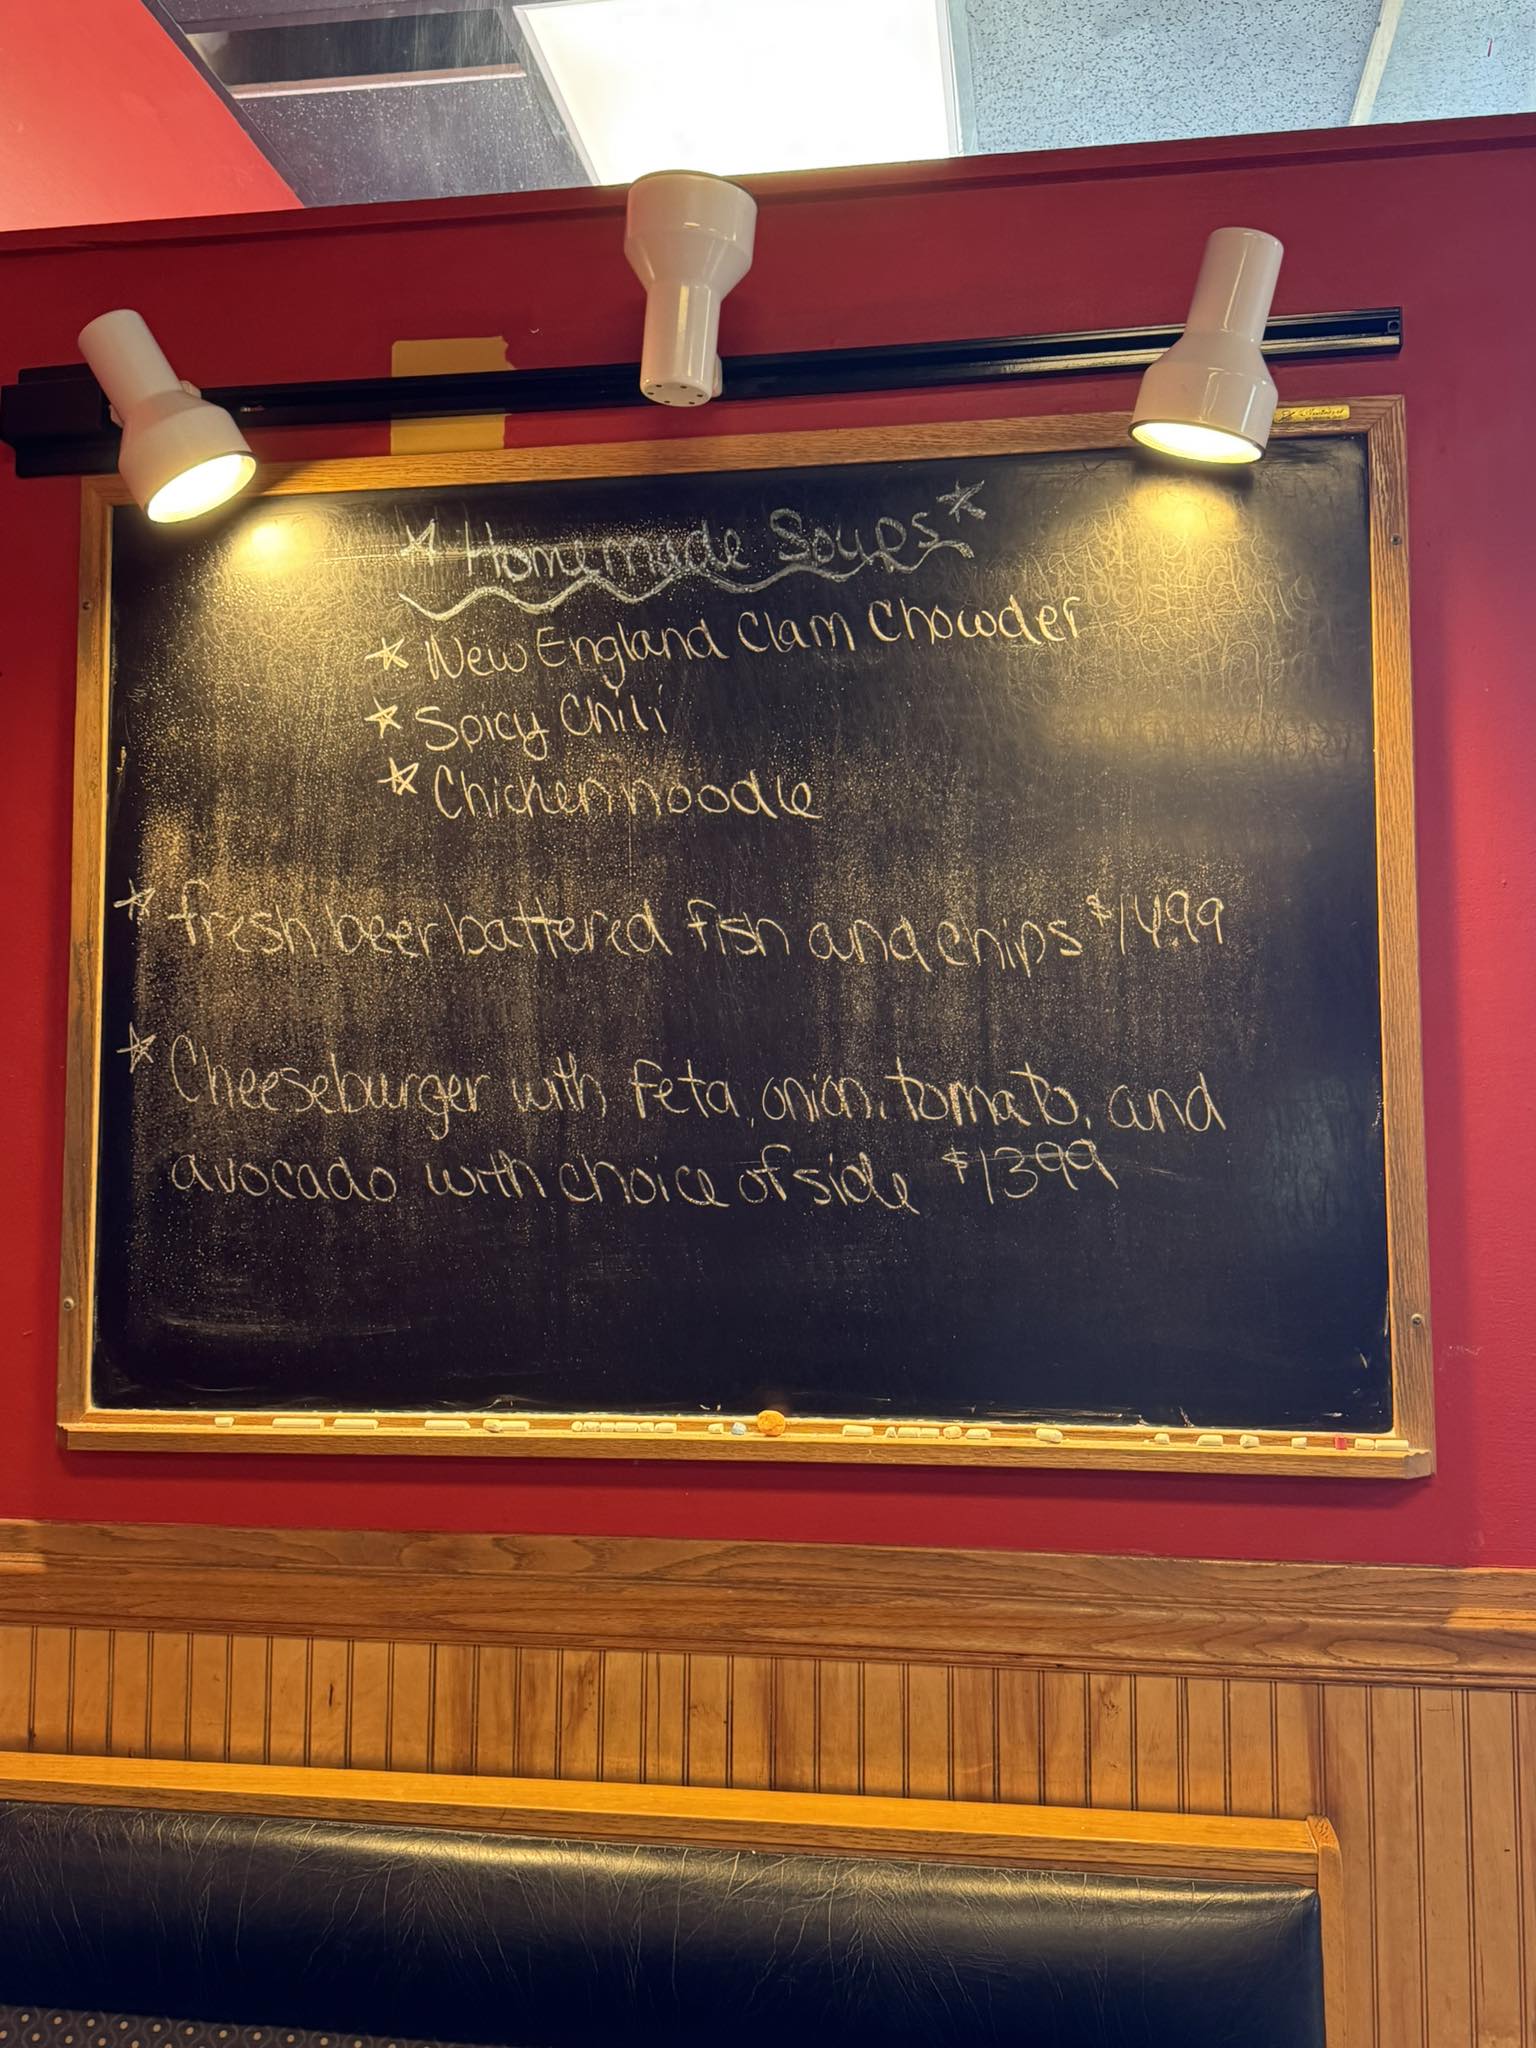 Homemade Soups
New England Clam Chowder
Spicy Chili
Chicken noodle
fresh beer battered fish and chips $14.99
Cheeseburger with feta, onion, tomato, and
avocado with choice of side $1399